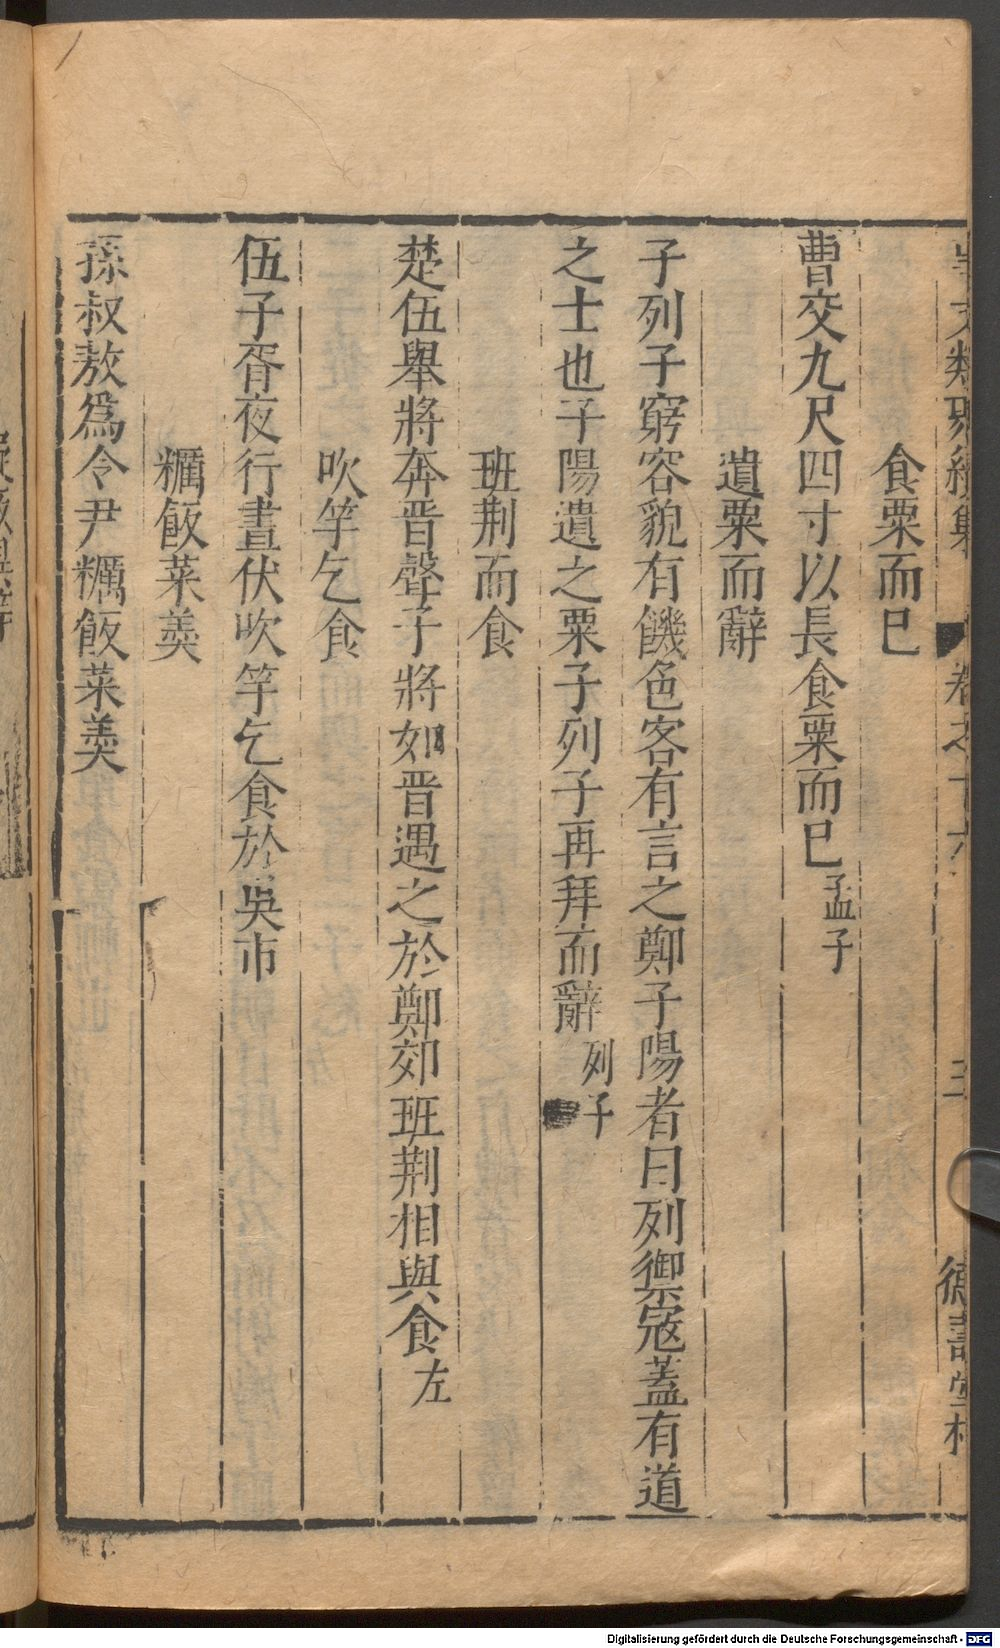 事文類聚續集 卷之十六 三 德壽堂梓
食粟而已
曹交九尺四寸以長食粟而已孟子
遺粟而辭
子列子窮容貌有饑色客有言之鄭子陽者曰列禦寇蓋有道
之士也子陽遺之粟子列子再拜而辭列子
班荆而食
楚伍舉將奔晋聲子將如晋遇之於鄭郊班荆相與食左
吹竽乞食
伍子胥夜行晝伏吹竽乞食於吳市
糲飯菜羮
孫叔敖爲令尹糲飯菜羮
Digitalisierung gefördert durch die Deutsche Forschungsgemeinschaft - DFG